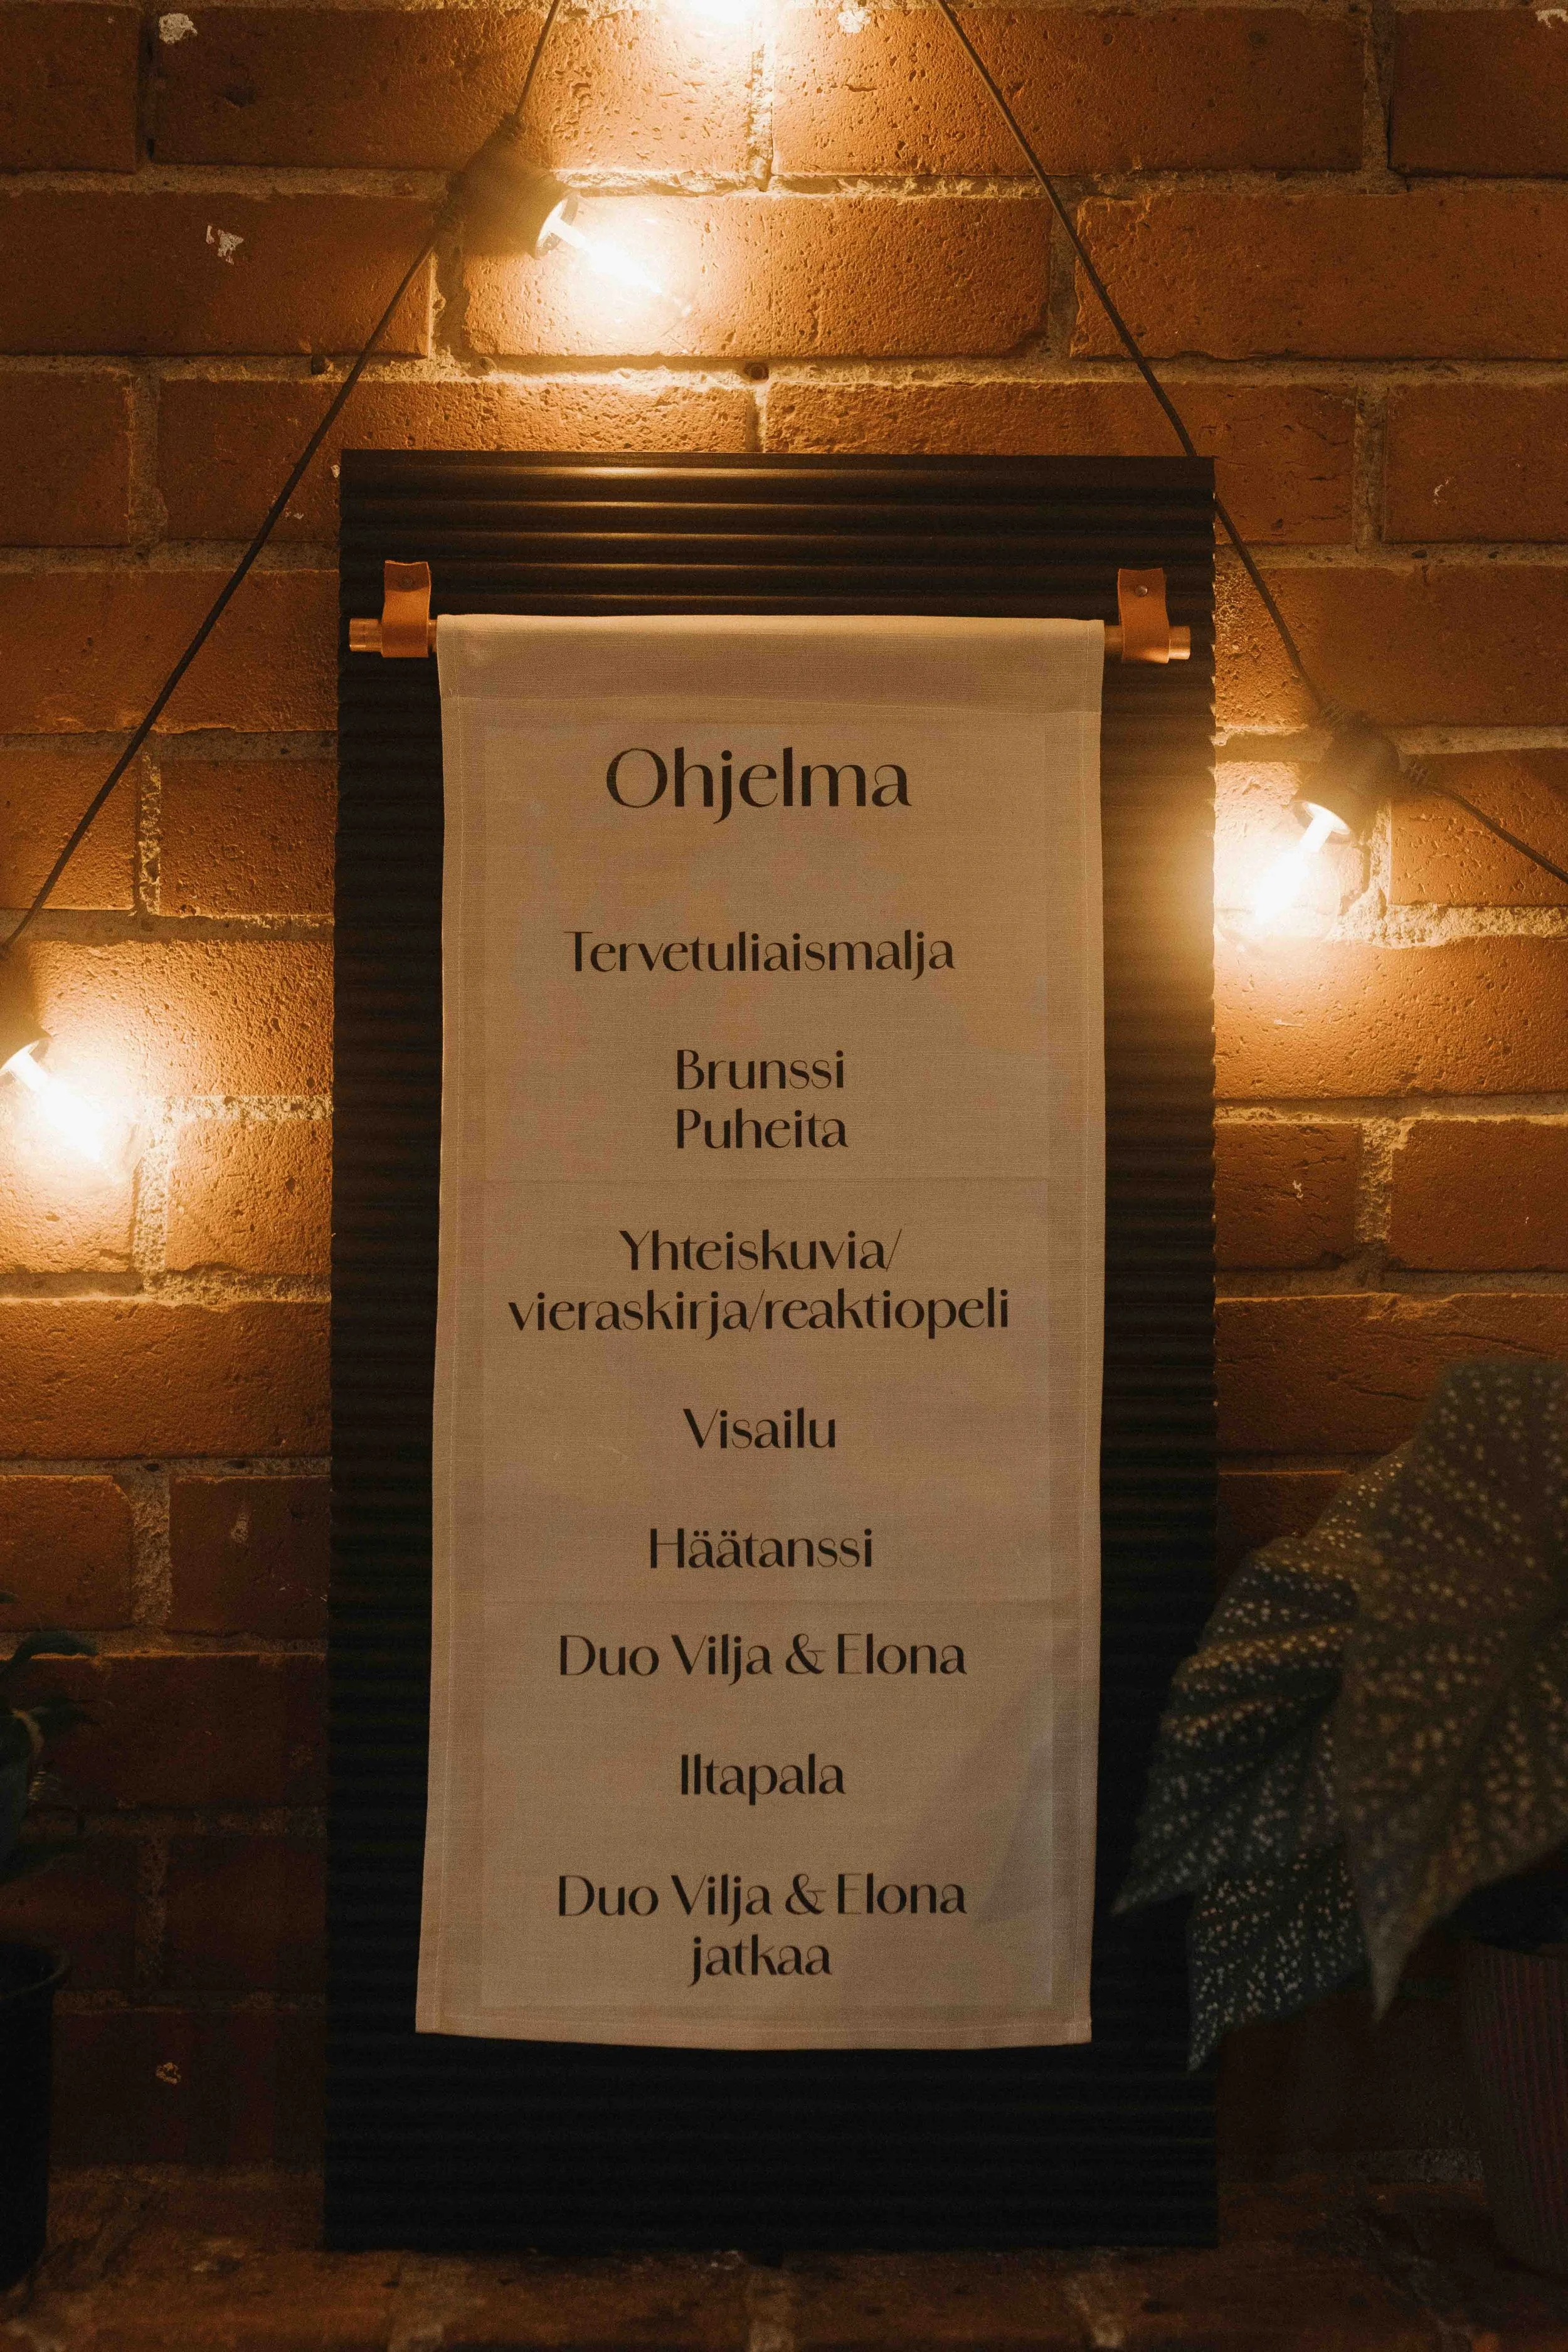 Ohjelma
Tervetuliaismalja
Brunssi
Puheita
Yhteiskuvia/
vieraskirja/reaktiopeli
Visailu
Häätanssi
Duo Vilja & Elona
Iltapala
Duo Vilja & Elona
jatkaa